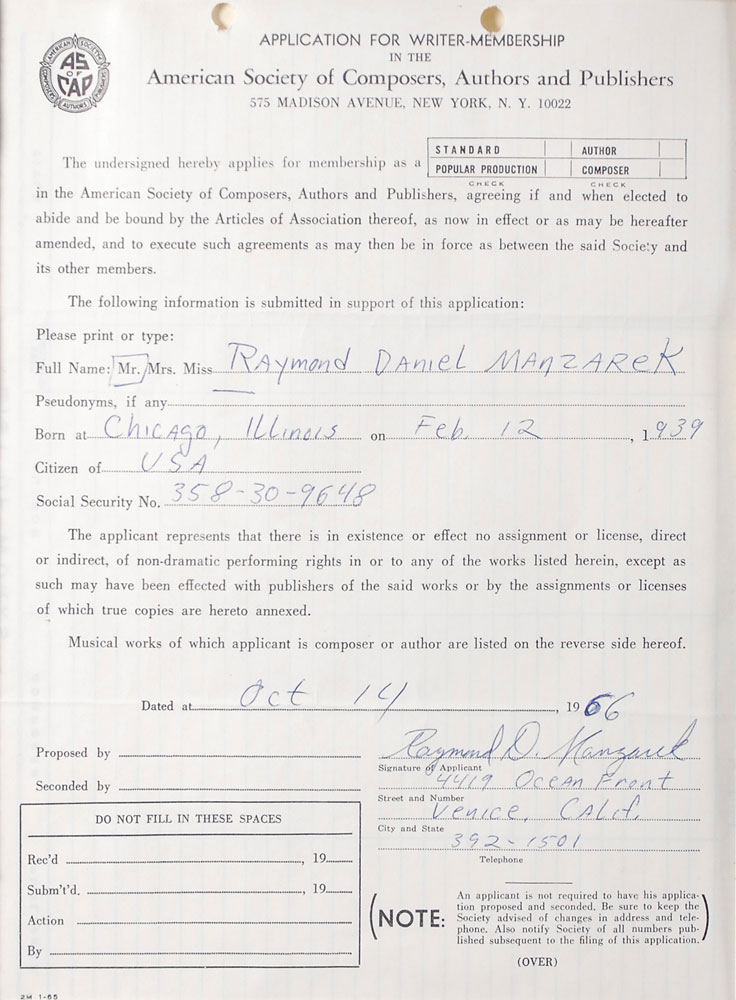 AMERICAN SOCIETY
AS
OF
CAP
COMPOSERS AUTHORS PUBLISHERS
APPLICATION FOR WRITER-MEMBERSHIP
IN THE
American Society of Composers, Authors and Publishers
575 MADISON AVENUE, NEW YORK, N. Y. 10022
STANDARD AUTHOR
The undersigned hereby applies for membership as a POPULAR PRODUCTION COMPOSER
CHECK CHECK
in the American Society of Composers, Authors and Publishers, agreeing if and when elected to
abide and be bound by the Articles of Association thereof, as now in effect or as may be hereafter
amended, and to execute such agreements as may then be in force as between the said Society and
its other members.
The following information is submitted in support of this application:
Please print or type:
Full Name: Mr. Mrs. Miss RAymond DAniel MANZAREK
Pseudonyms, if any
Born at Chicago, Illinois on Feb. 12, 1939
Citizen of USA
Social Security No. 358-30-9648
The applicant represents that there is in existence or effect no assignment or license, direct
or indirect, of non-dramatic performing rights in or to any of the works listed herein, except as
such may have been effected with publishers of the said works or by the assignments or licenses
of which true copies are hereto annexed.
Musical works of which applicant is composer or author are listed on the reverse side hereof.
Dated at Oct 14, 1966
Proposed by
Raymond D. Manzarek
Signature of Applicant
Seconded by
4419 Ocean Front
Street and Number
Venice, Calif.
City and State
392-1501
Telephone
DO NOT FILL IN THESE SPACES
Rec'd , 19
Subm't'd. , 19
Action
By
NOTE:
An applicant is not required to have his applica-
tion proposed and seconded. Be sure to keep the
Society advised of changes in address and tele-
phone. Also notify Society of all numbers pub-
lished subsequent to the filing of this application.
(OVER)
2M 1-65